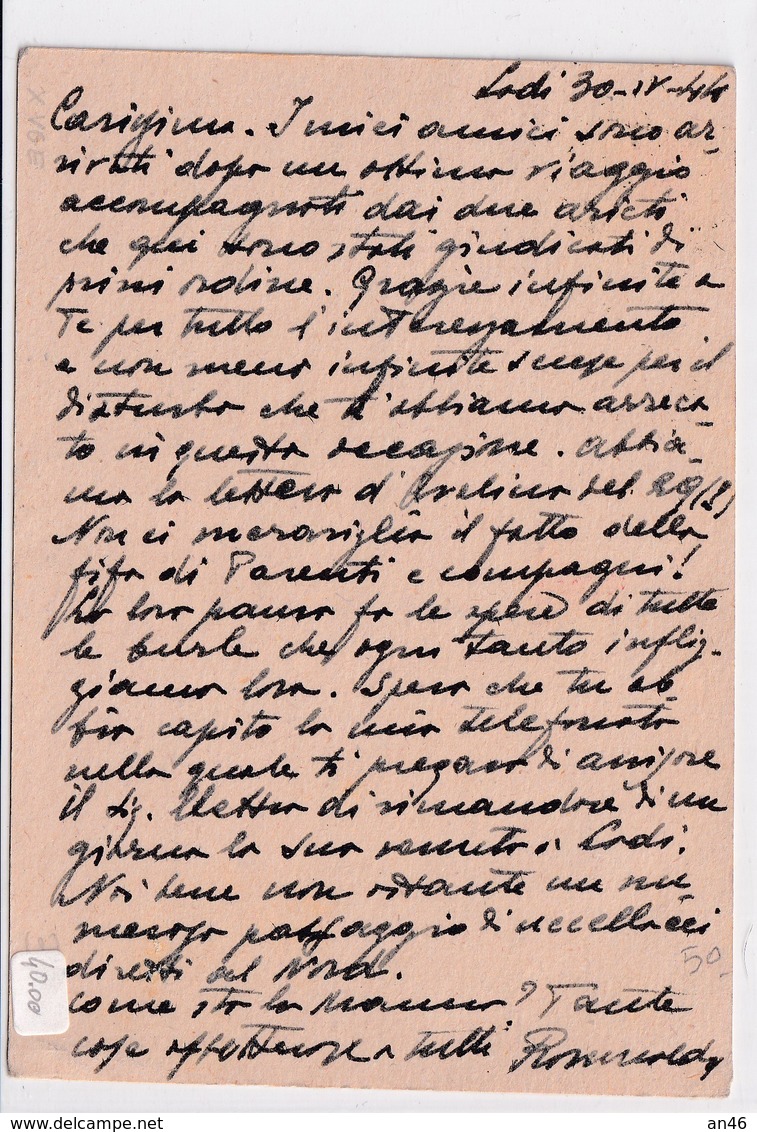 Lodi 30-IV-44
Carissimo. I miei amici sono ar-
rivati dopo un ottimo viaggio
accompagnati dai due arieti
che qui sono stati giudicati di
primi ordine. Grazie infinite a
Te per tutto l'interessamento
e non meno infinite scuse per il
disturbo che ti abbiamo arreca-
to in questa occasione. Abbia-
mo la lettera d'Avelino del 29
Non ci meraviglia il fatto della
fifa di Parenti e compagni!
La loro paura fa le spese di tutte
le burle che ogni tanto inflig-
giamo loro. Spero che tu ab-
bia capito la mia telefonata
nella quale ti pregavo di avvisare
il sig. di rimandare di un
giorno la sua venuta a Lodi.
Noi bene non ostante un nu-
meroso passaggio di uccellacci
diretti al Nord.
Come sta la Mamma? Tante
cose affettuose a tutti Romualdo
X VG E
40.00
50-
an46